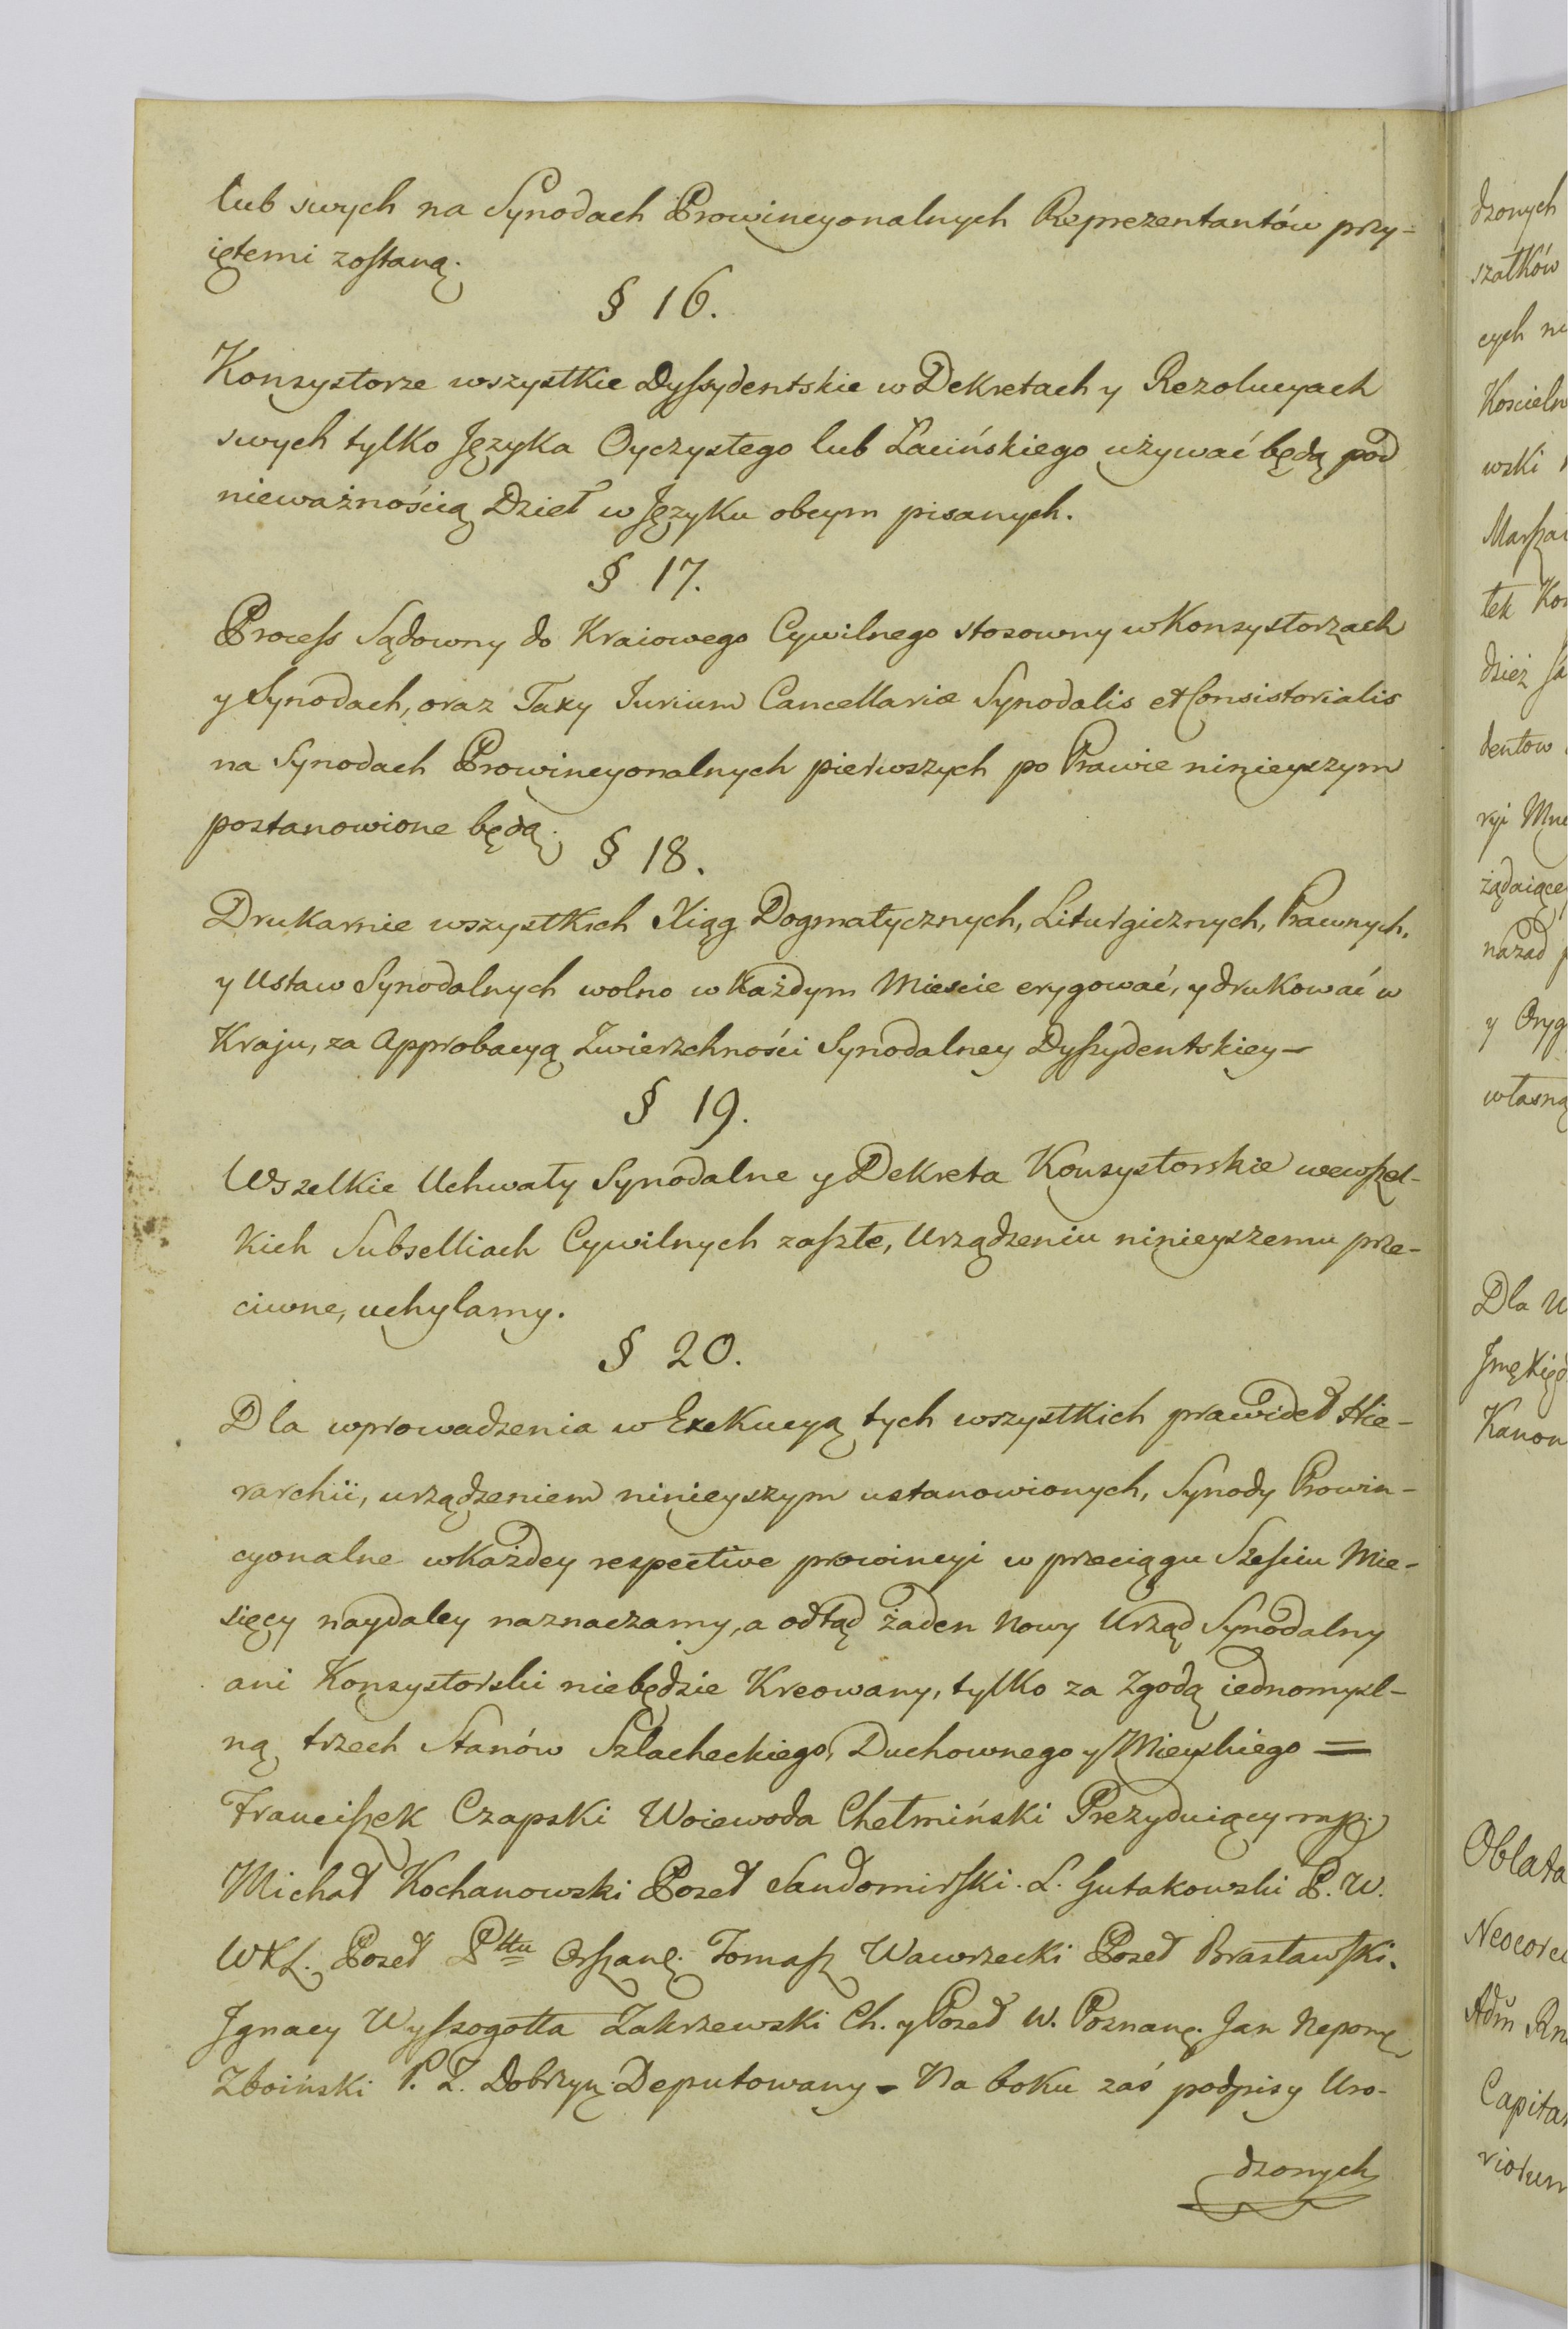 lub swych na Synodach Prowincyonalnych Reprezentantów przy-
iętemi zostaną.
§ 16.
Konsystorze wszystkie Dyssydentskie w Dekretach y Rezolucyach
swych tylko Języka Oyczystego lub Łacińskiego używać będą pod
nieważnością Dzieł w Języku obcym pisanych.
§ 17.
Process Sądowny do Kraiowego Cywilnego stosowny w Konsystorzach
y Synodach, oraz Taxy Jurium Cancellariæ Synodalis et Consistorialis
na Synodach Prowincyonalnych pierwszych po Prawie ninieyszym
postanowione będą.
§ 18.
Drukarnie wszystkich Xiąg Dogmatycznych, Liturgicznych, Prawnych,
y Ustaw Synodalnych wolno w Każdym Mieście erygować, y drukować w
Kraju, za Approbacyą Zwierzchności Synodalney Dyssydentskiey -
§ 19.
Wszelkie Uchwały Synodalne y Dekreta Konsystorskie wewszel-
kich Subselliach Cywilnych zaszłe, Urządzeniu ninieyszemu prze-
ciwne, uchylamy.
§ 20.
Dla wprowadzenia w Exekucyą tych wszystkich prawideł Hie-
rarchii, urządzeniem ninieyszym ustanowionych, Synody Prowin-
cyonalne w Każdey respective prowincyi w przeciągu Sześciu Mie-
sięcy naydaley naznaczamy, a odtąd żaden nowy Urząd Synodalny
ani Konsystorski niebędzie Kreowany, tylko za zgodą iednomysl-
ną trzech Stanów Szlacheckiego, Duchownego y Mieyskiego =
Franciszek Czapski Woiewoda Chełmiński Prezyduiący mp.
Michał Kochanowski Poseł Sandomirski. L. Gutakowski P. W.
WXL. Poseł Pttu Orszanę. Tomasz Wawrzecki Poseł Brasławski.
Jgnacy Wyssogotta Zakrzewski Ch. y Poseł W. Poznanę. Jan Nepomę
Zboiński P. Z. Dobrzyń. Deputowany - Na boku zaś podpisy Uro-
dzonych
dzonych
szałków
cych
Kościeln
wski
Marszał
tek
dzież
dentow
ryi
żądaiące
nazad
y Oryg
własną
Dla
Kanon
Oblata
Capita
riorum